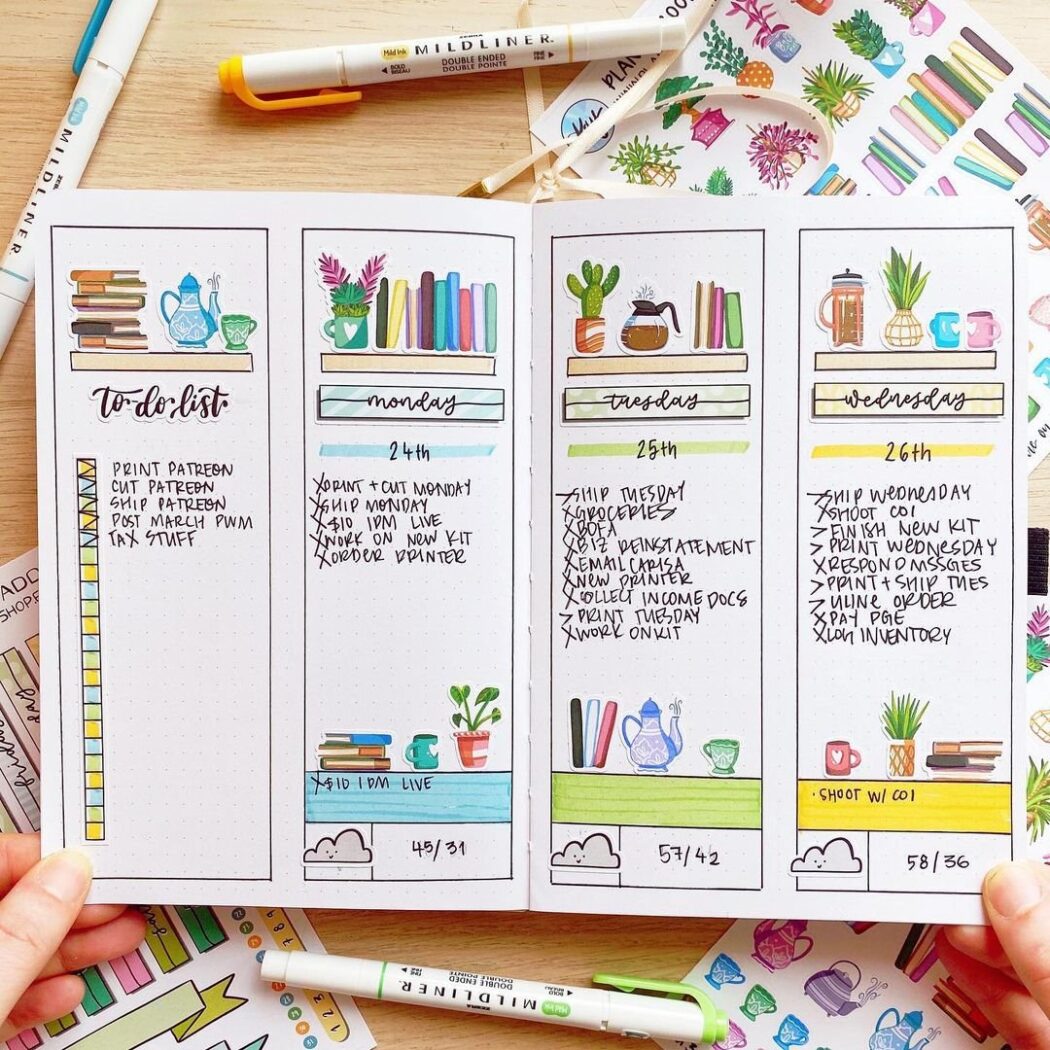 MILDLINER
ZEBRA
Mild Ink MILDLINER.
BOLD
BISEAU
DOUBLE ENDED
DOUBLE POINTE
FINE
FINE
to-do list
PRINT PATREON
CUT PATREON
SHIP PATREON
POST MARCH PWM
TAX STUFF
monday
24th
X PRINT + CUT MONDAY
X SHIP MONDAY
X $10 1PM LIVE
X WORK ON NEW KIT
X ORDER PRINTER
X $10 1PM LIVE
45/31
tuesday
25th
X SHIP TUESDAY
X GROCERIES
X BOFA
X BIZ REINSTATEMENT
X EMAIL CARISA
X NEW PRINTER
X COLLECT INCOME DOCS
> PRINT TUESDAY
X WORK ON KIT
57/42
wednesday
26th
X SHIP WEDNESDAY
X SHOOT CO1
> FINISH NEW KIT
> PRINT WEDNESDAY
X RESPOND MSSGES
> PRINT + SHIP TUES
> ULINE ORDER
X PAY PGE
X LOG INVENTORY
· SHOOT W/ CO1
58/36
MILDLINER
Mild Ink
DOUBLE ENDED
DOUBLE POINTE
BOLD
BISEAU
FINE
FINE
7 8 9
1 2 3